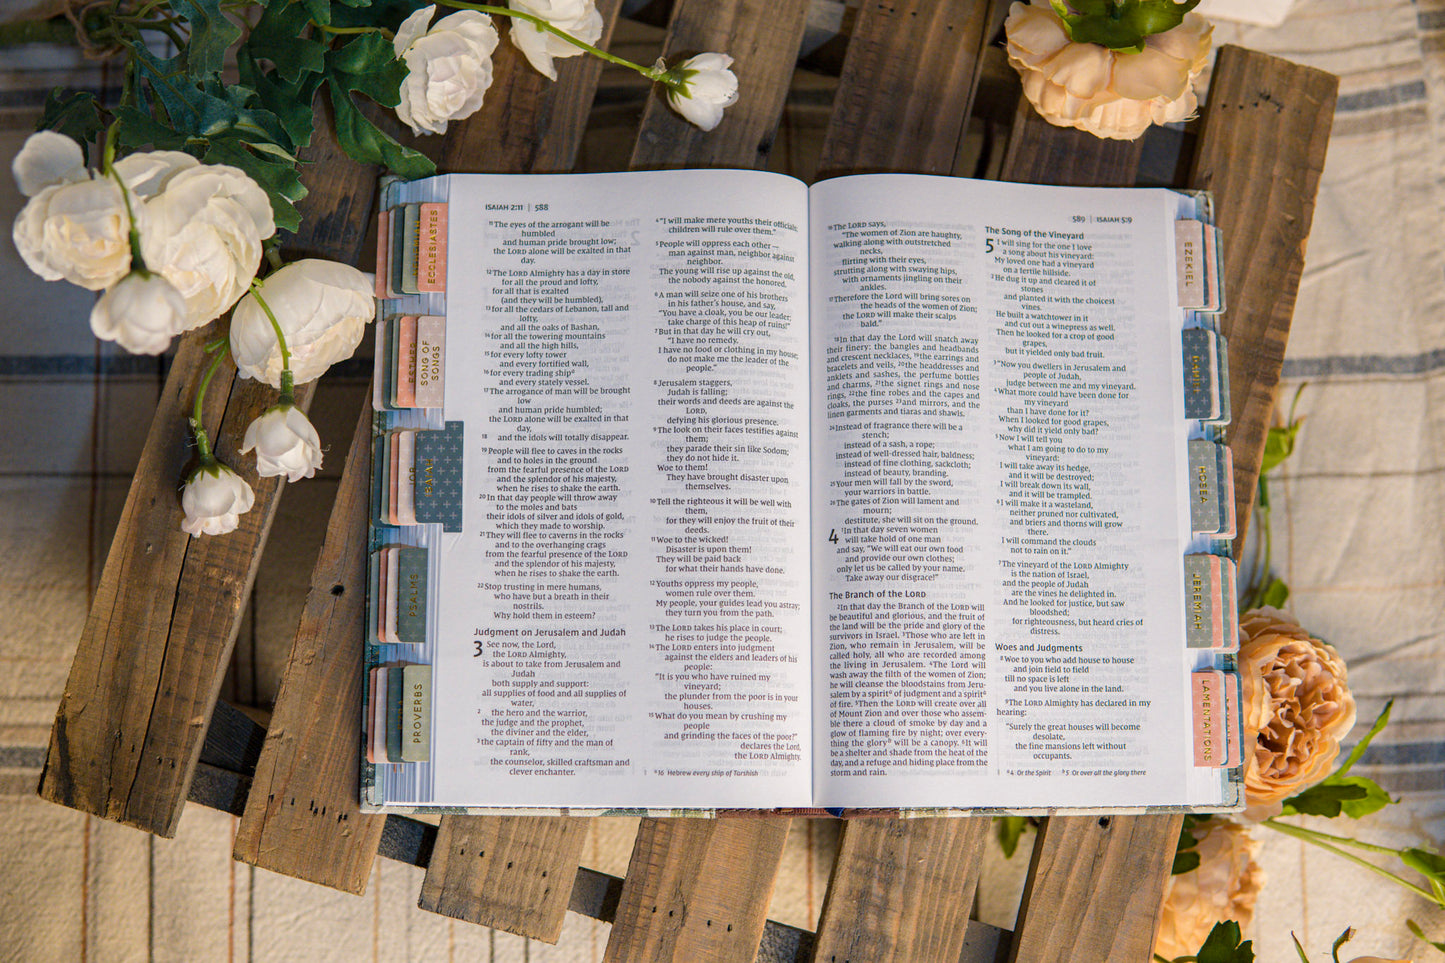 ISAIAH 2:11 | 588
11 The eyes of the arrogant will be
humbled
and human pride brought low;
the LORD alone will be exalted in that
day.
12 The LORD Almighty has a day in store
for all the proud and lofty,
for all that is exalted
(and they will be humbled),
13 for all the cedars of Lebanon, tall and
lofty,
and all the oaks of Bashan,
14 for all the towering mountains
and all the high hills,
15 for every lofty tower
and every fortified wall,
16 for every trading ship a
and every stately vessel.
17 The arrogance of man will be brought
low
and human pride humbled;
the LORD alone will be exalted in that
day,
18 and the idols will totally disappear.
19 People will flee to caves in the rocks
and to holes in the ground
from the fearful presence of the LORD
and the splendor of his majesty,
when he rises to shake the earth.
20 In that day people will throw away
to the moles and bats
their idols of silver and idols of gold,
which they made to worship.
21 They will flee to caverns in the rocks
and to the overhanging crags
from the fearful presence of the LORD
and the splendor of his majesty,
when he rises to shake the earth.
22 Stop trusting in mere humans,
who have but a breath in their
nostrils.
Why hold them in esteem?
Judgment on Jerusalem and Judah
3 See now, the Lord,
the LORD Almighty,
is about to take from Jerusalem and
Judah
both supply and support:
all supplies of food and all supplies of
water,
2 the hero and the warrior,
the judge and the prophet,
the diviner and the elder,
3 the captain of fifty and the man of
rank,
the counselor, skilled craftsman and
clever enchanter.
4 "I will make mere youths their officials;
children will rule over them."
5 People will oppress each other—
man against man, neighbor against
neighbor.
The young will rise up against the old,
the nobody against the honored.
6 A man will seize one of his brothers
in his father's house, and say,
"You have a cloak, you be our leader;
take charge of this heap of ruins!"
7 But in that day he will cry out,
"I have no remedy.
I have no food or clothing in my house;
do not make me the leader of the
people."
8 Jerusalem staggers,
Judah is falling;
their words and deeds are against the
LORD,
defying his glorious presence.
9 The look on their faces testifies against
them;
they parade their sin like Sodom;
they do not hide it.
Woe to them!
They have brought disaster upon
themselves.
10 Tell the righteous it will be well with
them,
for they will enjoy the fruit of their
deeds.
11 Woe to the wicked!
Disaster is upon them!
They will be paid back
for what their hands have done.
12 Youths oppress my people,
women rule over them.
My people, your guides lead you astray;
they turn you from the path.
13 The LORD takes his place in court;
he rises to judge the people.
14 The LORD enters into judgment
against the elders and leaders of his
people:
"It is you who have ruined my
vineyard;
the plunder from the poor is in your
houses.
15 What do you mean by crushing my
people
and grinding the faces of the poor?"
declares the Lord,
the LORD Almighty.
a 16 Hebrew every ship of Tarshish
589 | ISAIAH 5:9
16 The LORD says,
"The women of Zion are haughty,
walking along with outstretched
necks,
flirting with their eyes,
strutting along with swaying hips,
with ornaments jingling on their
ankles.
17 Therefore the Lord will bring sores on
the heads of the women of Zion;
the LORD will make their scalps
bald."
18 In that day the Lord will snatch away
their finery: the bangles and headbands
and crescent necklaces, 19 the earrings and
bracelets and veils, 20 the headdresses and
anklets and sashes, the perfume bottles
and charms, 21 the signet rings and nose
rings, 22 the fine robes and the capes and
cloaks, the purses 23 and mirrors, and the
linen garments and tiaras and shawls.
24 Instead of fragrance there will be a
stench;
instead of a sash, a rope;
instead of well-dressed hair, baldness;
instead of fine clothing, sackcloth;
instead of beauty, branding.
25 Your men will fall by the sword,
your warriors in battle.
26 The gates of Zion will lament and
mourn;
destitute, she will sit on the ground.
4 1 In that day seven women
will take hold of one man
and say, "We will eat our own food
and provide our own clothes;
only let us be called by your name.
Take away our disgrace!"
The Branch of the LORD
2 In that day the Branch of the LORD will
be beautiful and glorious, and the fruit of
the land will be the pride and glory of the
survivors in Israel. 3 Those who are left in
Zion, who remain in Jerusalem, will be
called holy, all who are recorded among
the living in Jerusalem. 4 The Lord will
wash away the filth of the women of Zion;
he will cleanse the bloodstains from Jeru-
salem by a spirit a of judgment and a spirit a
of fire. 5 Then the LORD will create over all
of Mount Zion and over those who assem-
ble there a cloud of smoke by day and a
glow of flaming fire by night; over every-
thing the glory b will be a canopy. 6 It will
be a shelter and shade from the heat of the
day, and a refuge and hiding place from the
storm and rain.
The Song of the Vineyard
5 1 I will sing for the one I love
a song about his vineyard:
My loved one had a vineyard
on a fertile hillside.
2 He dug it up and cleared it of
stones
and planted it with the choicest
vines.
He built a watchtower in it
and cut out a winepress as well.
Then he looked for a crop of good
grapes,
but it yielded only bad fruit.
3 "Now you dwellers in Jerusalem and
people of Judah,
judge between me and my vineyard.
4 What more could have been done for
my vineyard
than I have done for it?
When I looked for good grapes,
why did it yield only bad?
5 Now I will tell you
what I am going to do to my
vineyard:
I will take away its hedge,
and it will be destroyed;
I will break down its wall,
and it will be trampled.
6 I will make it a wasteland,
neither pruned nor cultivated,
and briers and thorns will grow
there.
I will command the clouds
not to rain on it."
7 The vineyard of the LORD Almighty
is the nation of Israel,
and the people of Judah
are the vines he delighted in.
And he looked for justice, but saw
bloodshed;
for righteousness, but heard cries of
distress.
Woes and Judgments
8 Woe to you who add house to house
and join field to field
till no space is left
and you live alone in the land.
9 The LORD Almighty has declared in my
hearing:
"Surely the great houses will become
desolate,
the fine mansions left without
occupants.
a 4 Or the Spirit b 5 Or over all the glory there
ECCLESIASTES
ESTHER
SONG OF
SONGS
JOB
ISAIAH
PSALMS
PROVERBS
EZEKIEL
HOSEA
JEREMIAH
LAMENTATIONS